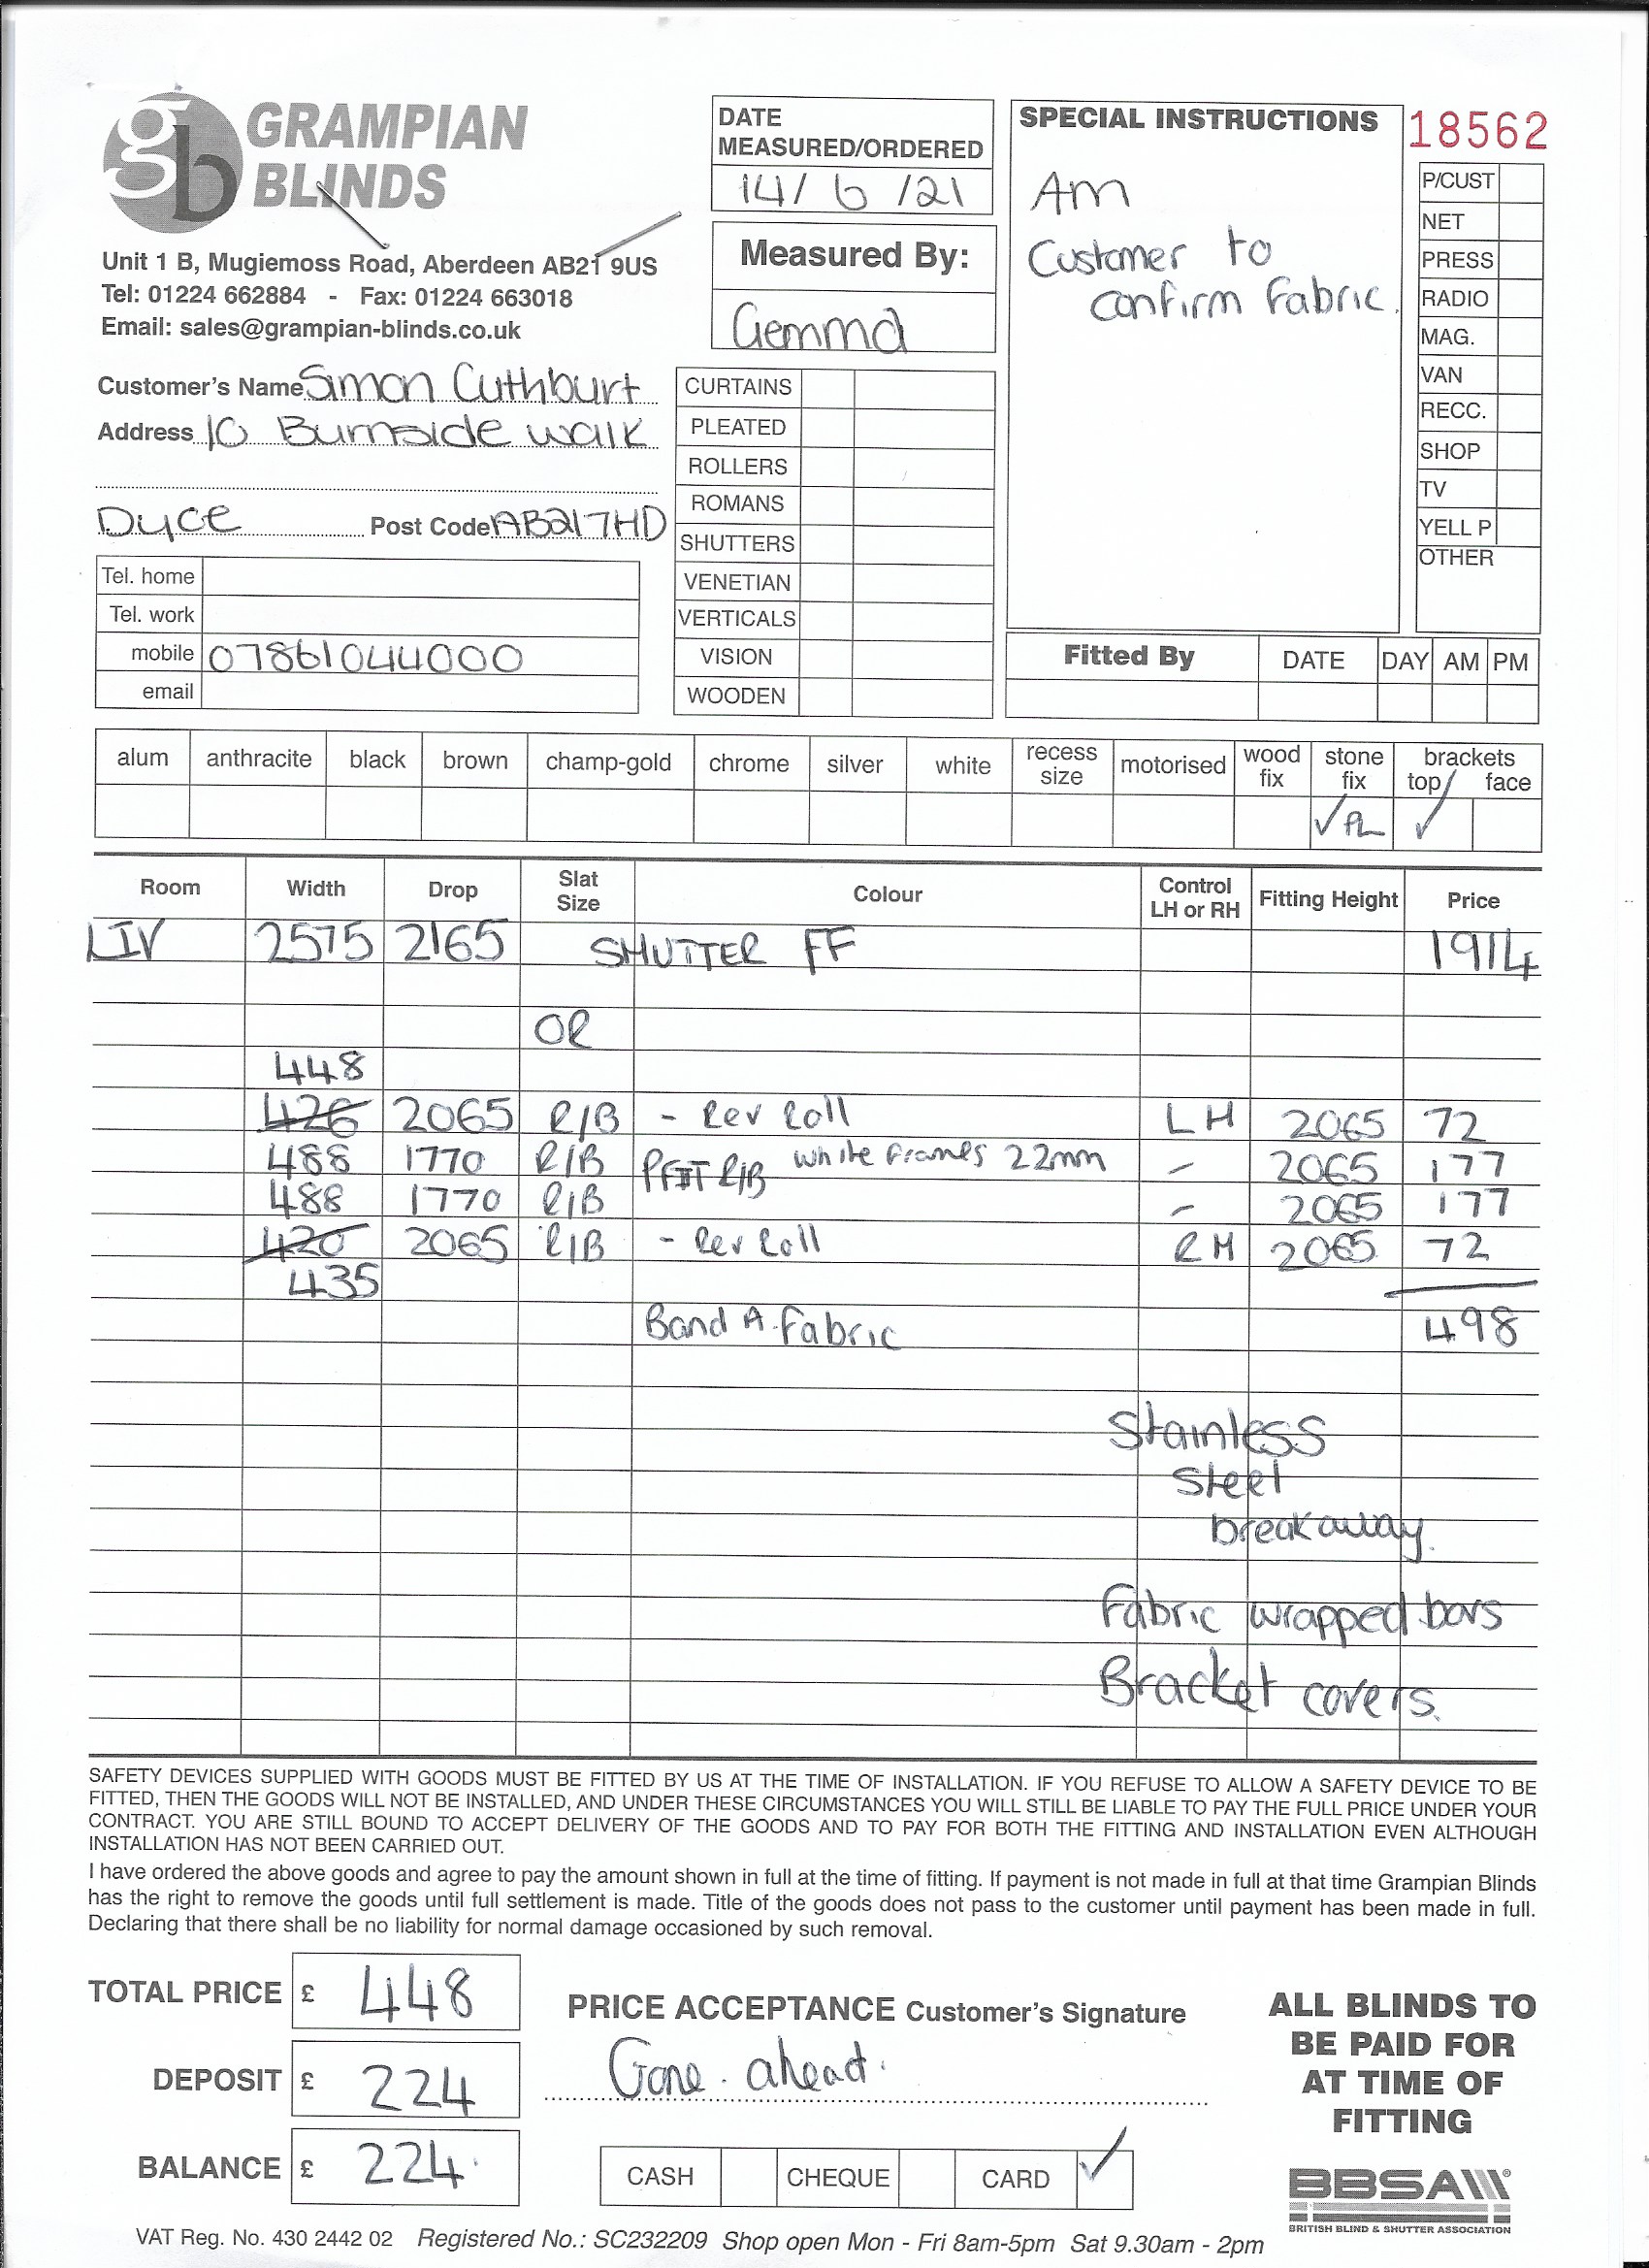 gb GRAMPIAN
BLINDS
Unit 1 B, Mugiemoss Road, Aberdeen AB21 9US
Tel: 01224 662884 - Fax: 01224 663018
Email: sales@grampian-blinds.co.uk
Customer's Name Simon Cuthburt
Address 10 Burnside walk
Dyce Post Code AB217HD
Tel. home
Tel. work
mobile 07861044000
email
DATE
MEASURED/ORDERED
14/6/21
Measured By:
Gemma
CURTAINS
PLEATED
ROLLERS
ROMANS
SHUTTERS
VENETIAN
VERTICALS
VISION
WOODEN
SPECIAL INSTRUCTIONS
Am
Customer to
confirm fabric.
18562
P/CUST
NET
PRESS
RADIO
MAG.
VAN
RECC.
SHOP
TV
YELL P
OTHER
Fitted By DATE DAY AM PM
alum anthracite black brown champ-gold chrome silver white recess size motorised wood fix stone fix brackets top/ face
✓ ✓
Room Width Drop Slat Size Colour Control LH or RH Fitting Height Price
LIV 2575 2165 SHUTTER FF 1914
OR
448
426 2065 R/B - Rev Roll LH 2065 72
488 1770 R/B R/B white frames 22mm - 2065 177
488 1770 R/B - 2065 177
420 2065 R/B - Rev Roll RH 2065 72
435
Band A Fabric 498
Stainless
Steel
breakaway.
Fabric wrapped bars
Bracket covers.
SAFETY DEVICES SUPPLIED WITH GOODS MUST BE FITTED BY US AT THE TIME OF INSTALLATION. IF YOU REFUSE TO ALLOW A SAFETY DEVICE TO BE
FITTED, THEN THE GOODS WILL NOT BE INSTALLED, AND UNDER THESE CIRCUMSTANCES YOU WILL STILL BE LIABLE TO PAY THE FULL PRICE UNDER YOUR
CONTRACT. YOU ARE STILL BOUND TO ACCEPT DELIVERY OF THE GOODS AND TO PAY FOR BOTH THE FITTING AND INSTALLATION EVEN ALTHOUGH
INSTALLATION HAS NOT BEEN CARRIED OUT.
I have ordered the above goods and agree to pay the amount shown in full at the time of fitting. If payment is not made in full at that time Grampian Blinds
has the right to remove the goods until full settlement is made. Title of the goods does not pass to the customer until payment has been made in full.
Declaring that there shall be no liability for normal damage occasioned by such removal.
TOTAL PRICE £ 448
DEPOSIT £ 224
BALANCE £ 224
PRICE ACCEPTANCE Customer's Signature
Gone ahead.
CASH CHEQUE CARD ✓
ALL BLINDS TO
BE PAID FOR
AT TIME OF
FITTING
BBSA
BRITISH BLIND & SHUTTER ASSOCIATION
VAT Reg. No. 430 2442 02 Registered No.: SC232209 Shop open Mon - Fri 8am-5pm Sat 9.30am - 2pm